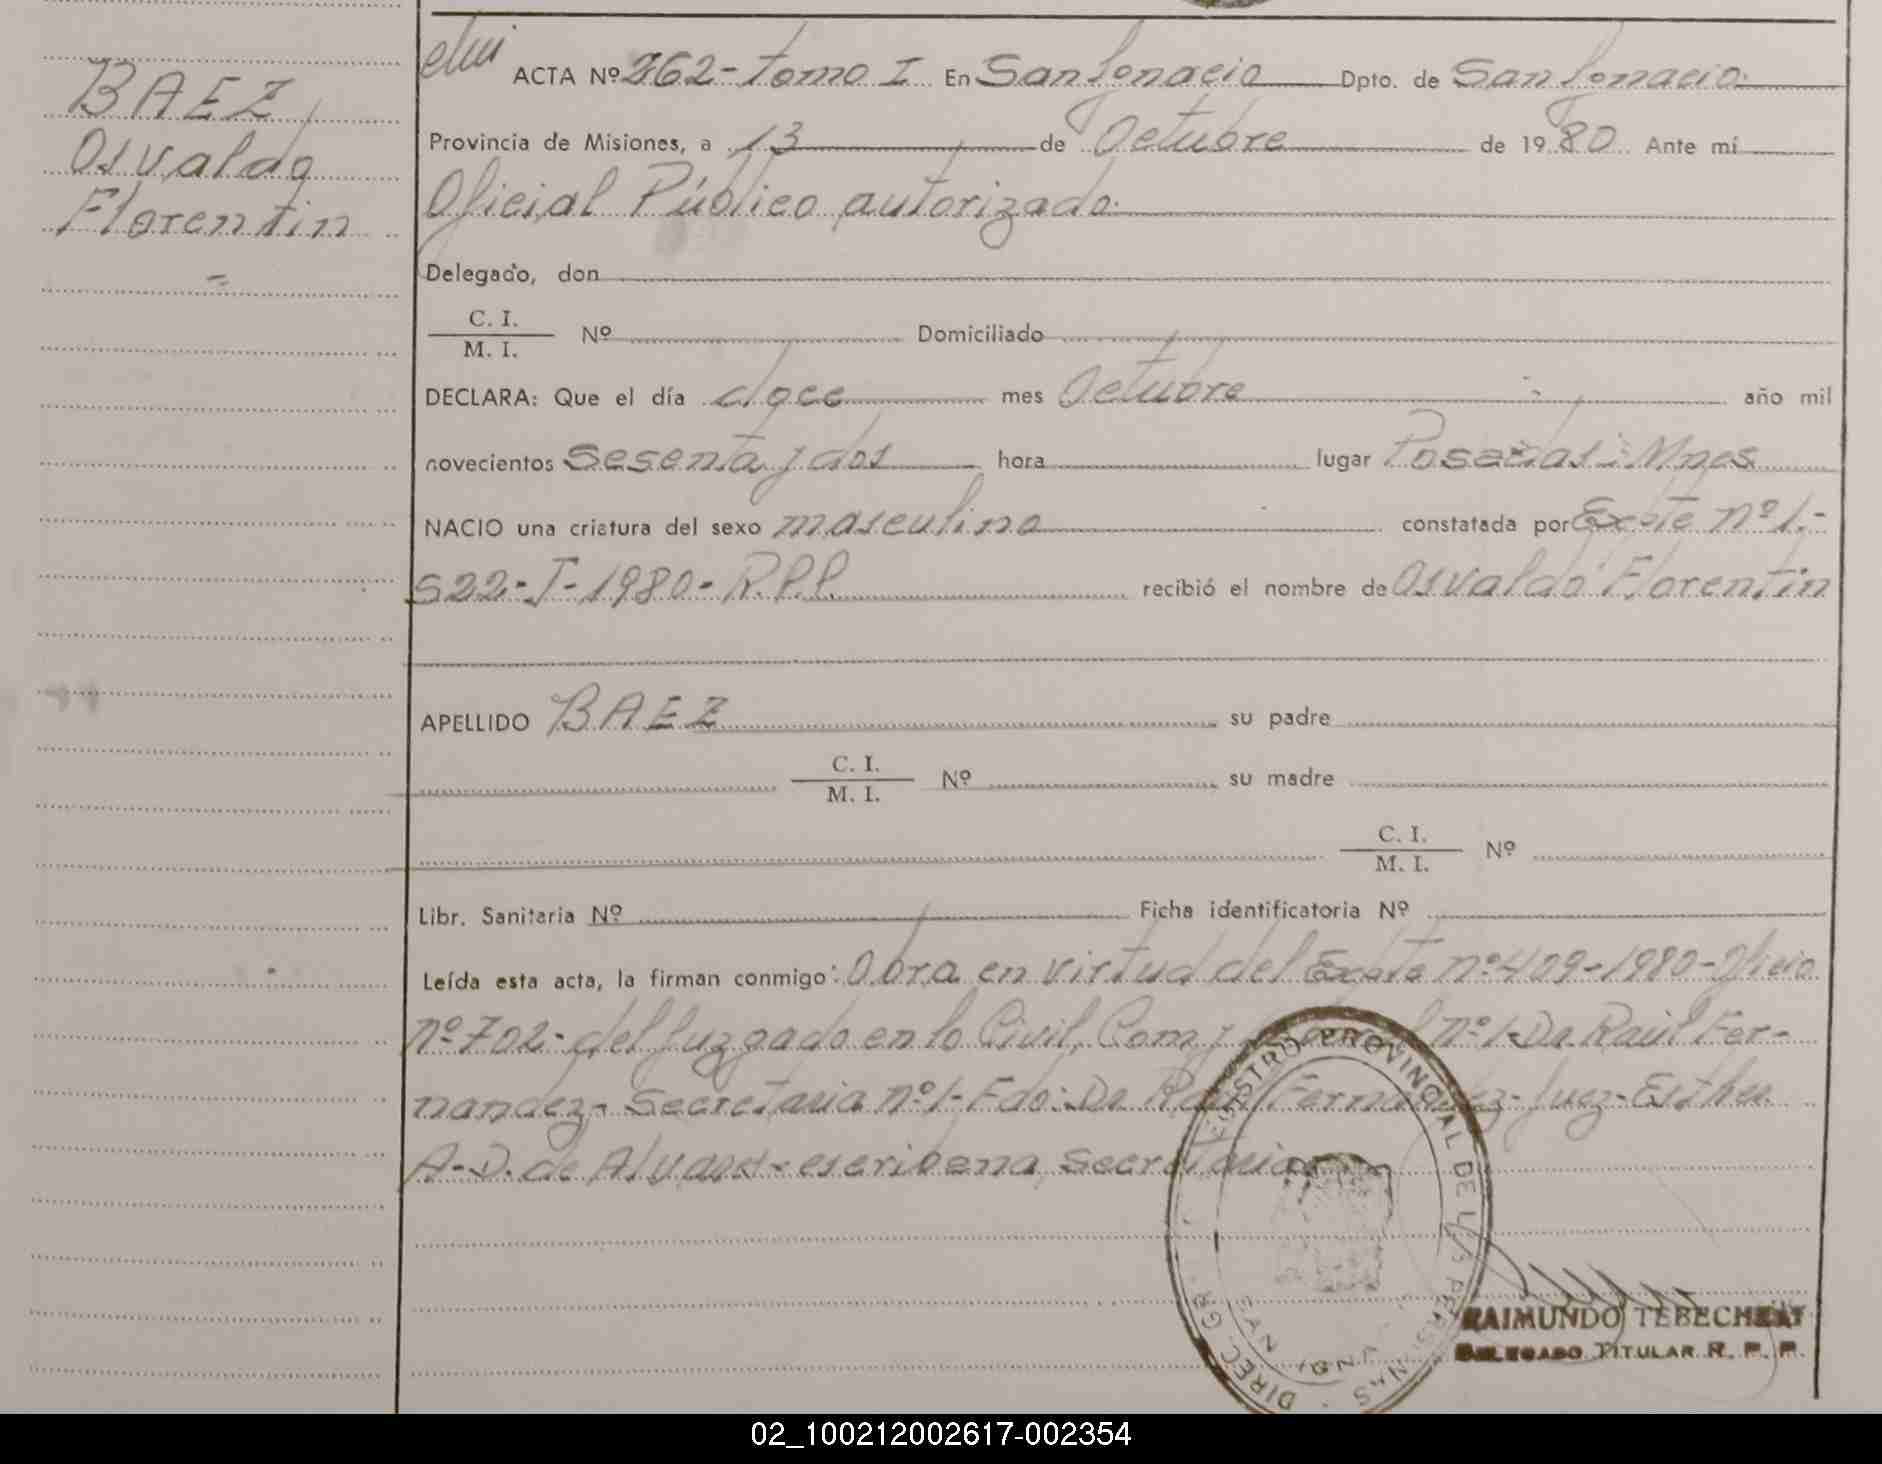 BAEZ
Osvaldo
Florentin
ACTA Nº 362-tomo I En San Ignacio Dpto. de San Ignacio
Provincia de Misiones, a 13 de Octubre de 1980 Ante mí
Oficial Público autorizado.
Delegado, don
C. I.
M. I. Nº Domiciliado
DECLARA: Que el día doce mes Octubre año mil
novecientos sesenta y dos hora lugar Posadas-Mnes
NACIO una criatura del sexo masculino constatada por Expte nº1.-
522-J-1980-R.P.P. recibió el nombre de Osvaldo Florentin
APELLIDO BAEZ su padre
C. I.
M. I. Nº su madre
C. I.
M. I. Nº
Libr. Sanitaria Nº Ficha identificatoria Nº
Leída esta acta, la firman conmigo: Obra en virtud del Expte nº409-1980-Oficio
nº702-del Juzgado en lo Civil, Com. y nº1-Dr Raúl Fer-
nandez-Secretaria nº1-Fdo: Dr Raúl Fernandez-Juez-Esther
A-D. de Alvarez-escribana secretaria
REGISTRO PROVINCIAL DE LAS PERSONAS
SAN IGNA
DIREC GR
RAIMUNDO TEBECHERY
DELEGADO TITULAR R. P. P.
02_100212002617-002354